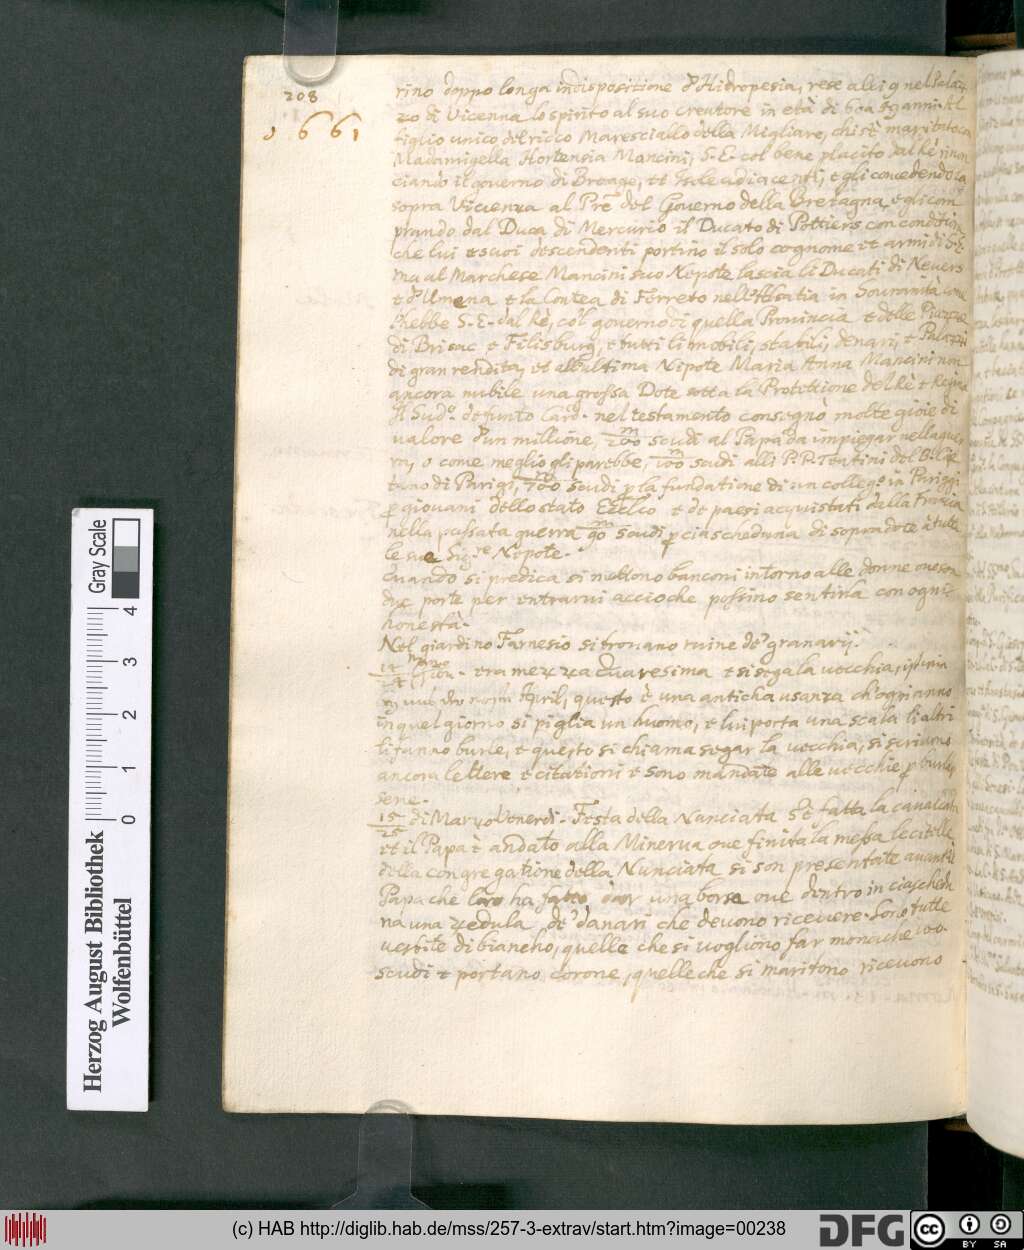 208
1661
rino doppo longa indisposizione d'Hidropesia, rese a lei 9 nel Palaz
zo di Vicenna lo spirito al suo creatore in età di 60 a 59 anni. Al
figlio unico del ricco Maresciallo della Migliare, chi s'è maritato ca
Madamigella Hortensia Mancini, S. E. col bene placito dal Rè rinon
ciando il governo di Broage, et Isole adiacenti, e gli concedendola
sopra Vicienza al Pre del Governo della Bretagna, e gli com
prando dal Duca di Mercurio il Ducato di Poltiers con condition
che lui et suoi descendenti portino il solo cognome et armi di S. E.
ma al Marchese Mancini suo Nepote lascia li Ducati di Nevers
et d'Umena et la Contea di Ferreto nell'Alsatia in Souranità come
l'hebbe S. E. dal Rè, col governo di quella Provincia et delle Piazze
di Brisac et Filisburg, et tutti li mobili, stabili, denari, et Palazzi
di gran rendita, et all'ultima Nipote Maria Anna Mancini non
ancora nubile una grossa Dote sotto la Protettione del Rè et Regina
Il Sudo. defunto Card. nel testamento consegnò molte gioie di
valore d'un millione, 200 m scudi al Papa da impiegar nella guer
ra, o come meglio gli parebbe, 100 m scudi alli P. P. Teatini del
di Parigi, scudi p la fundatione di un collego in Pariggi
p giovani dello stato Eccleco et de paesi acquistati della Francia
nella passata guerra 90 m scudi p ciascheduna di sopradote à tutte
le sue Sigre Nepote.
Quando si predica si mettono banconi intorno alle donne ove son
due porte per entrarvi accioche possino sentirla con ogni
honestà.
Nel giardino Farnesio si trovano ruine de' granarij.
14 24 Marzo Giov. era mezza Quaresima et si sega la vecchia,
April, questo è una anticha usanza ch'ogni anno
in quel giorno si piglia un huomo, et lui porta una scala li altri
li fanno burle, et questo si chiama segar la vecchia, si scrivono
ancora lettere et citationi et sono mandate alle vecchie p burlar
sene.
15 25 di Marzo Venerdi. Festa della Nunciata s'è fatta la cavalcata
et il Papa è andato alla Minerva ove finita la messa le citelle
della congregatione della Nunciata si son presentate avant' il
Papa che loro ha fatto dar una borsa ove dentro in ciaschedu
na una zedula de' danari che devono ricevere. Sono tutte
vestite di biancho, quelle che si vogliono far monache 100.
scudi et portano corone, quelle che si maritono ricevono
Gray Scale
0 1 2 3 4
Herzog August Bibliothek
Wolfenbüttel
(c) HAB http://diglib.hab.de/mss/257-3-extrav/start.htm?image=00238
DFG
cc BY SA